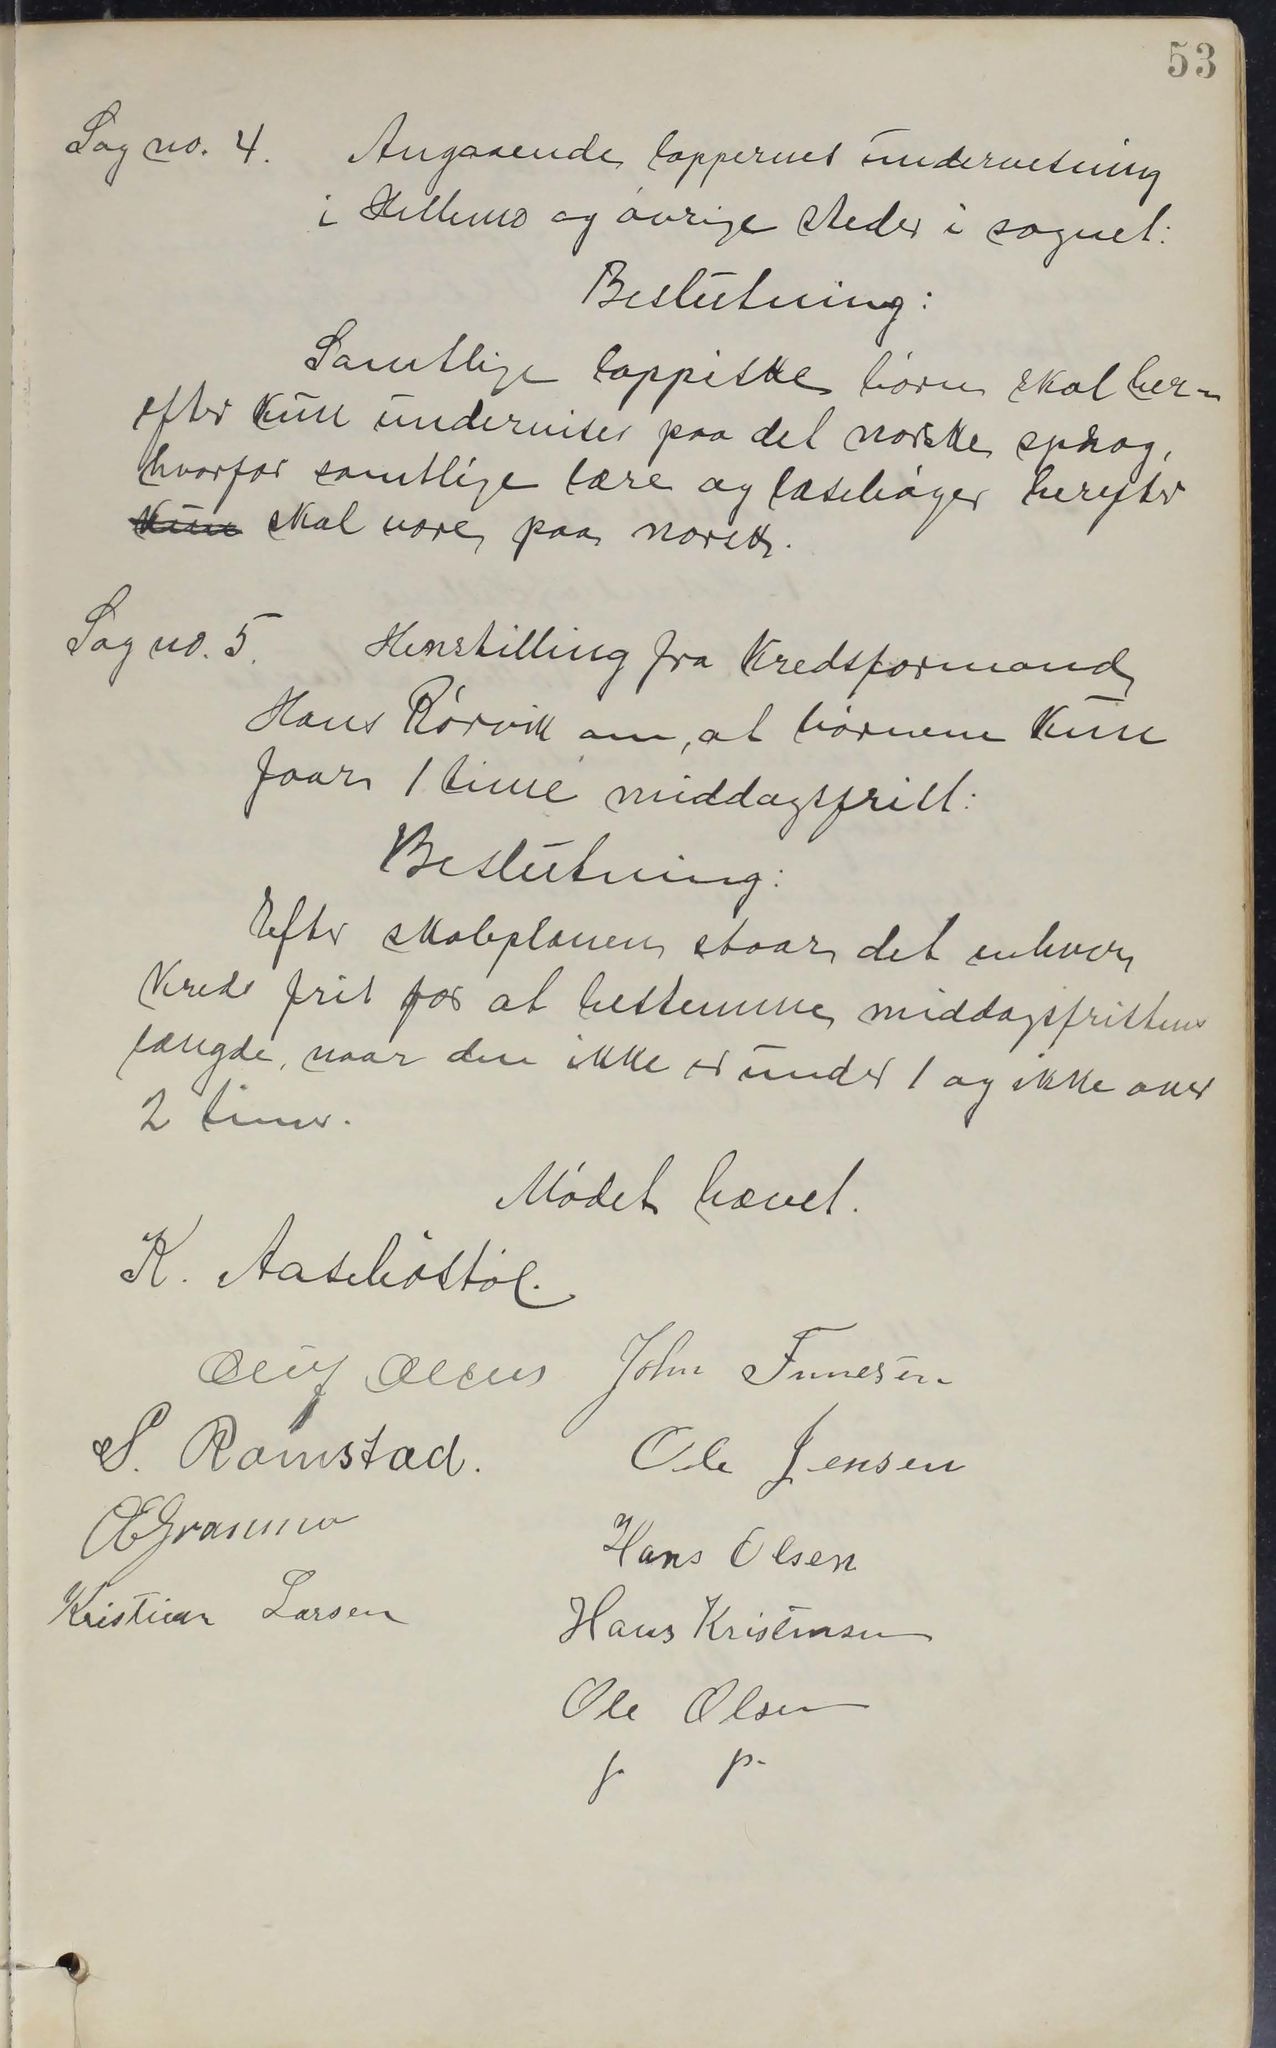 53
Sag no. 4. Angaaende lappernes undervisning
i Hellemo og øvrige steder i sognet:
Beslutning:
Samtlige lappiske børn skal her-
efter kun undervises paa det norske sprog,
hvorfor samtlige lære og læsebøger herefter
kun skal være paa norsk.
Sag no. 5. Henstilling fra kredsformand
Hans Rørvik om, at børnene kun
faar 1 time middagsfrist:
Beslutning:
Efter skoleplanen staar det enhver
kreds frit for at bestemme middagsfristens
længde, naar den ikke er under 1 og ikke over
2 timer.
Mødet hævet.
K. Aasebøstøl.
Oluf Olsen John Tunesen
S. Ramstad. Ole Jensen
Granmo Hans Olsen
Kristian Larsen Hans Kristensen
Ole Olsen